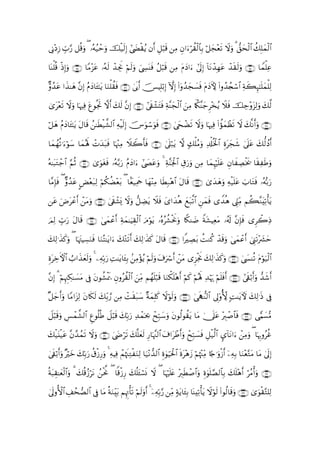 ٱلْمَلِكُ ٱلْحَقُّ ۗ وَلَا تَعْجَلْ بِٱلْقُرْءَانِ مِن قَبْلِ أَن يُقْضَىٰٓ إِلَيْكَ وَحْيُهُۥ ۖ وَقُل رَّبِّ زِدْنِى
عِلْمًا ۝ وَلَقَدْ عَهِدْنَآ إِلَىٰٓ ءَادَمَ مِن قَبْلُ فَنَسِىَ وَلَمْ نَجِدْ لَهُۥ عَزْمًا ۝ وَإِذْ قُلْنَا
لِلْمَلَٰٓئِكَةِ ٱسْجُدُوا۟ لِءَادَمَ فَسَجَدُوٓا۟ إِلَّآ إِبْلِيسَ أَبَىٰ ۝ فَقُلْنَا يَٰٓـَٔادَمُ إِنَّ هَٰذَا عَدُوٌّ
لَّكَ وَلِزَوْجِكَ فَلَا يُخْرِجَنَّكُمَا مِنَ ٱلْجَنَّةِ فَتَشْقَىٰٓ ۝ إِنَّ لَكَ أَلَّا تَجُوعَ فِيهَا وَلَا تَعْرَىٰ
۝ وَأَنَّكَ لَا تَظْمَؤُا۟ فِيهَا وَلَا تَضْحَىٰ ۝ فَوَسْوَسَ إِلَيْهِ ٱلشَّيْطَٰنُ قَالَ يَٰٓـَٔادَمُ هَلْ
أَدُلُّكَ عَلَىٰ شَجَرَةِ ٱلْخُلْدِ وَمُلْكٍ لَّا يَبْلَىٰ ۝ فَأَكَلَا مِنْهَا فَبَدَتْ لَهُمَا سَوْءَٰتُهُمَا
وَطَفِقَا يَخْصِفَانِ عَلَيْهِمَا مِن وَرَقِ ٱلْجَنَّةِ ۚ وَعَصَىٰٓ ءَادَمُ رَبَّهُۥ فَغَوَىٰ ۝ ثُمَّ ٱجْتَبَٰهُ
رَبُّهُۥ فَتَابَ عَلَيْهِ وَهَدَىٰ ۝ قَالَ ٱهْبِطَا مِنْهَا جَمِيعًۢا ۖ بَعْضُكُمْ لِبَعْضٍ عَدُوٌّ ۖ فَإِمَّا
يَأْتِيَنَّكُم مِّنِّى هُدًى فَمَنِ ٱتَّبَعَ هُدَاىَ فَلَا يَضِلُّ وَلَا يَشْقَىٰ ۝ وَمَنْ أَعْرَضَ عَن
ذِكْرِى فَإِنَّ لَهُۥ مَعِيشَةً ضَنكًا وَنَحْشُرُهُۥ يَوْمَ ٱلْقِيَٰمَةِ أَعْمَىٰ ۝ قَالَ رَبِّ لِمَ
حَشَرْتَنِىٓ أَعْمَىٰ وَقَدْ كُنتُ بَصِيرًا ۝ قَالَ كَذَٰلِكَ أَتَتْكَ ءَايَٰتُنَا فَنَسِيتَهَا ۖ وَكَذَٰلِكَ
ٱلْيَوْمَ تُنسَىٰ ۝ وَكَذَٰلِكَ نَجْزِى مَنْ أَسْرَفَ وَلَمْ يُؤْمِنۢ بِـَٔايَٰتِ رَبِّهِۦ ۚ وَلَعَذَابُ ٱلْءَاخِرَةِ
أَشَدُّ وَأَبْقَىٰٓ ۝ أَفَلَمْ يَهْدِ لَهُمْ كَمْ أَهْلَكْنَا قَبْلَهُم مِّنَ ٱلْقُرُونِ يَمْشُونَ فِى مَسَٰكِنِهِمْ ۗ إِنَّ
فِى ذَٰلِكَ لَءَايَٰتٍ لِّأُو۟لِى ٱلنُّهَىٰ ۝ وَلَوْلَا كَلِمَةٌ سَبَقَتْ مِن رَّبِّكَ لَكَانَ لِزَامًا وَأَجَلٌ
مُّسَمًّى ۝ فَٱصْبِرْ عَلَىٰ مَا يَقُولُونَ وَسَبِّحْ بِحَمْدِ رَبِّكَ قَبْلَ طُلُوعِ ٱلشَّمْسِ وَقَبْلَ
غُرُوبِهَا ۖ وَمِنْ ءَانَآئِ ٱلَّيْلِ فَسَبِّحْ وَأَطْرَافَ ٱلنَّهَارِ لَعَلَّكَ تَرْضَىٰ ۝ وَلَا تَمُدَّنَّ عَيْنَيْكَ
إِلَىٰ مَا مَتَّعْنَا بِهِۦٓ أَزْوَٰجًا مِّنْهُمْ زَهْرَةَ ٱلْحَيَوٰةِ ٱلدُّنْيَا لِنَفْتِنَهُمْ فِيهِ ۚ وَرِزْقُ رَبِّكَ خَيْرٌ وَأَبْقَىٰ
۝ وَأْمُرْ أَهْلَكَ بِٱلصَّلَوٰةِ وَٱصْطَبِرْ عَلَيْهَا ۖ لَا نَسْـَٔلُكَ رِزْقًا ۖ نَّحْنُ نَرْزُقُكَ ۗ وَٱلْعَٰقِبَةُ
لِلتَّقْوَىٰ ۝ وَقَالُوا۟ لَوْلَا يَأْتِينَا بِـَٔايَةٍ مِّن رَّبِّهِۦٓ ۚ أَوَلَمْ تَأْتِهِم بَيِّنَةُ مَا فِى ٱلصُّحُفِ ٱلْأُولَىٰ